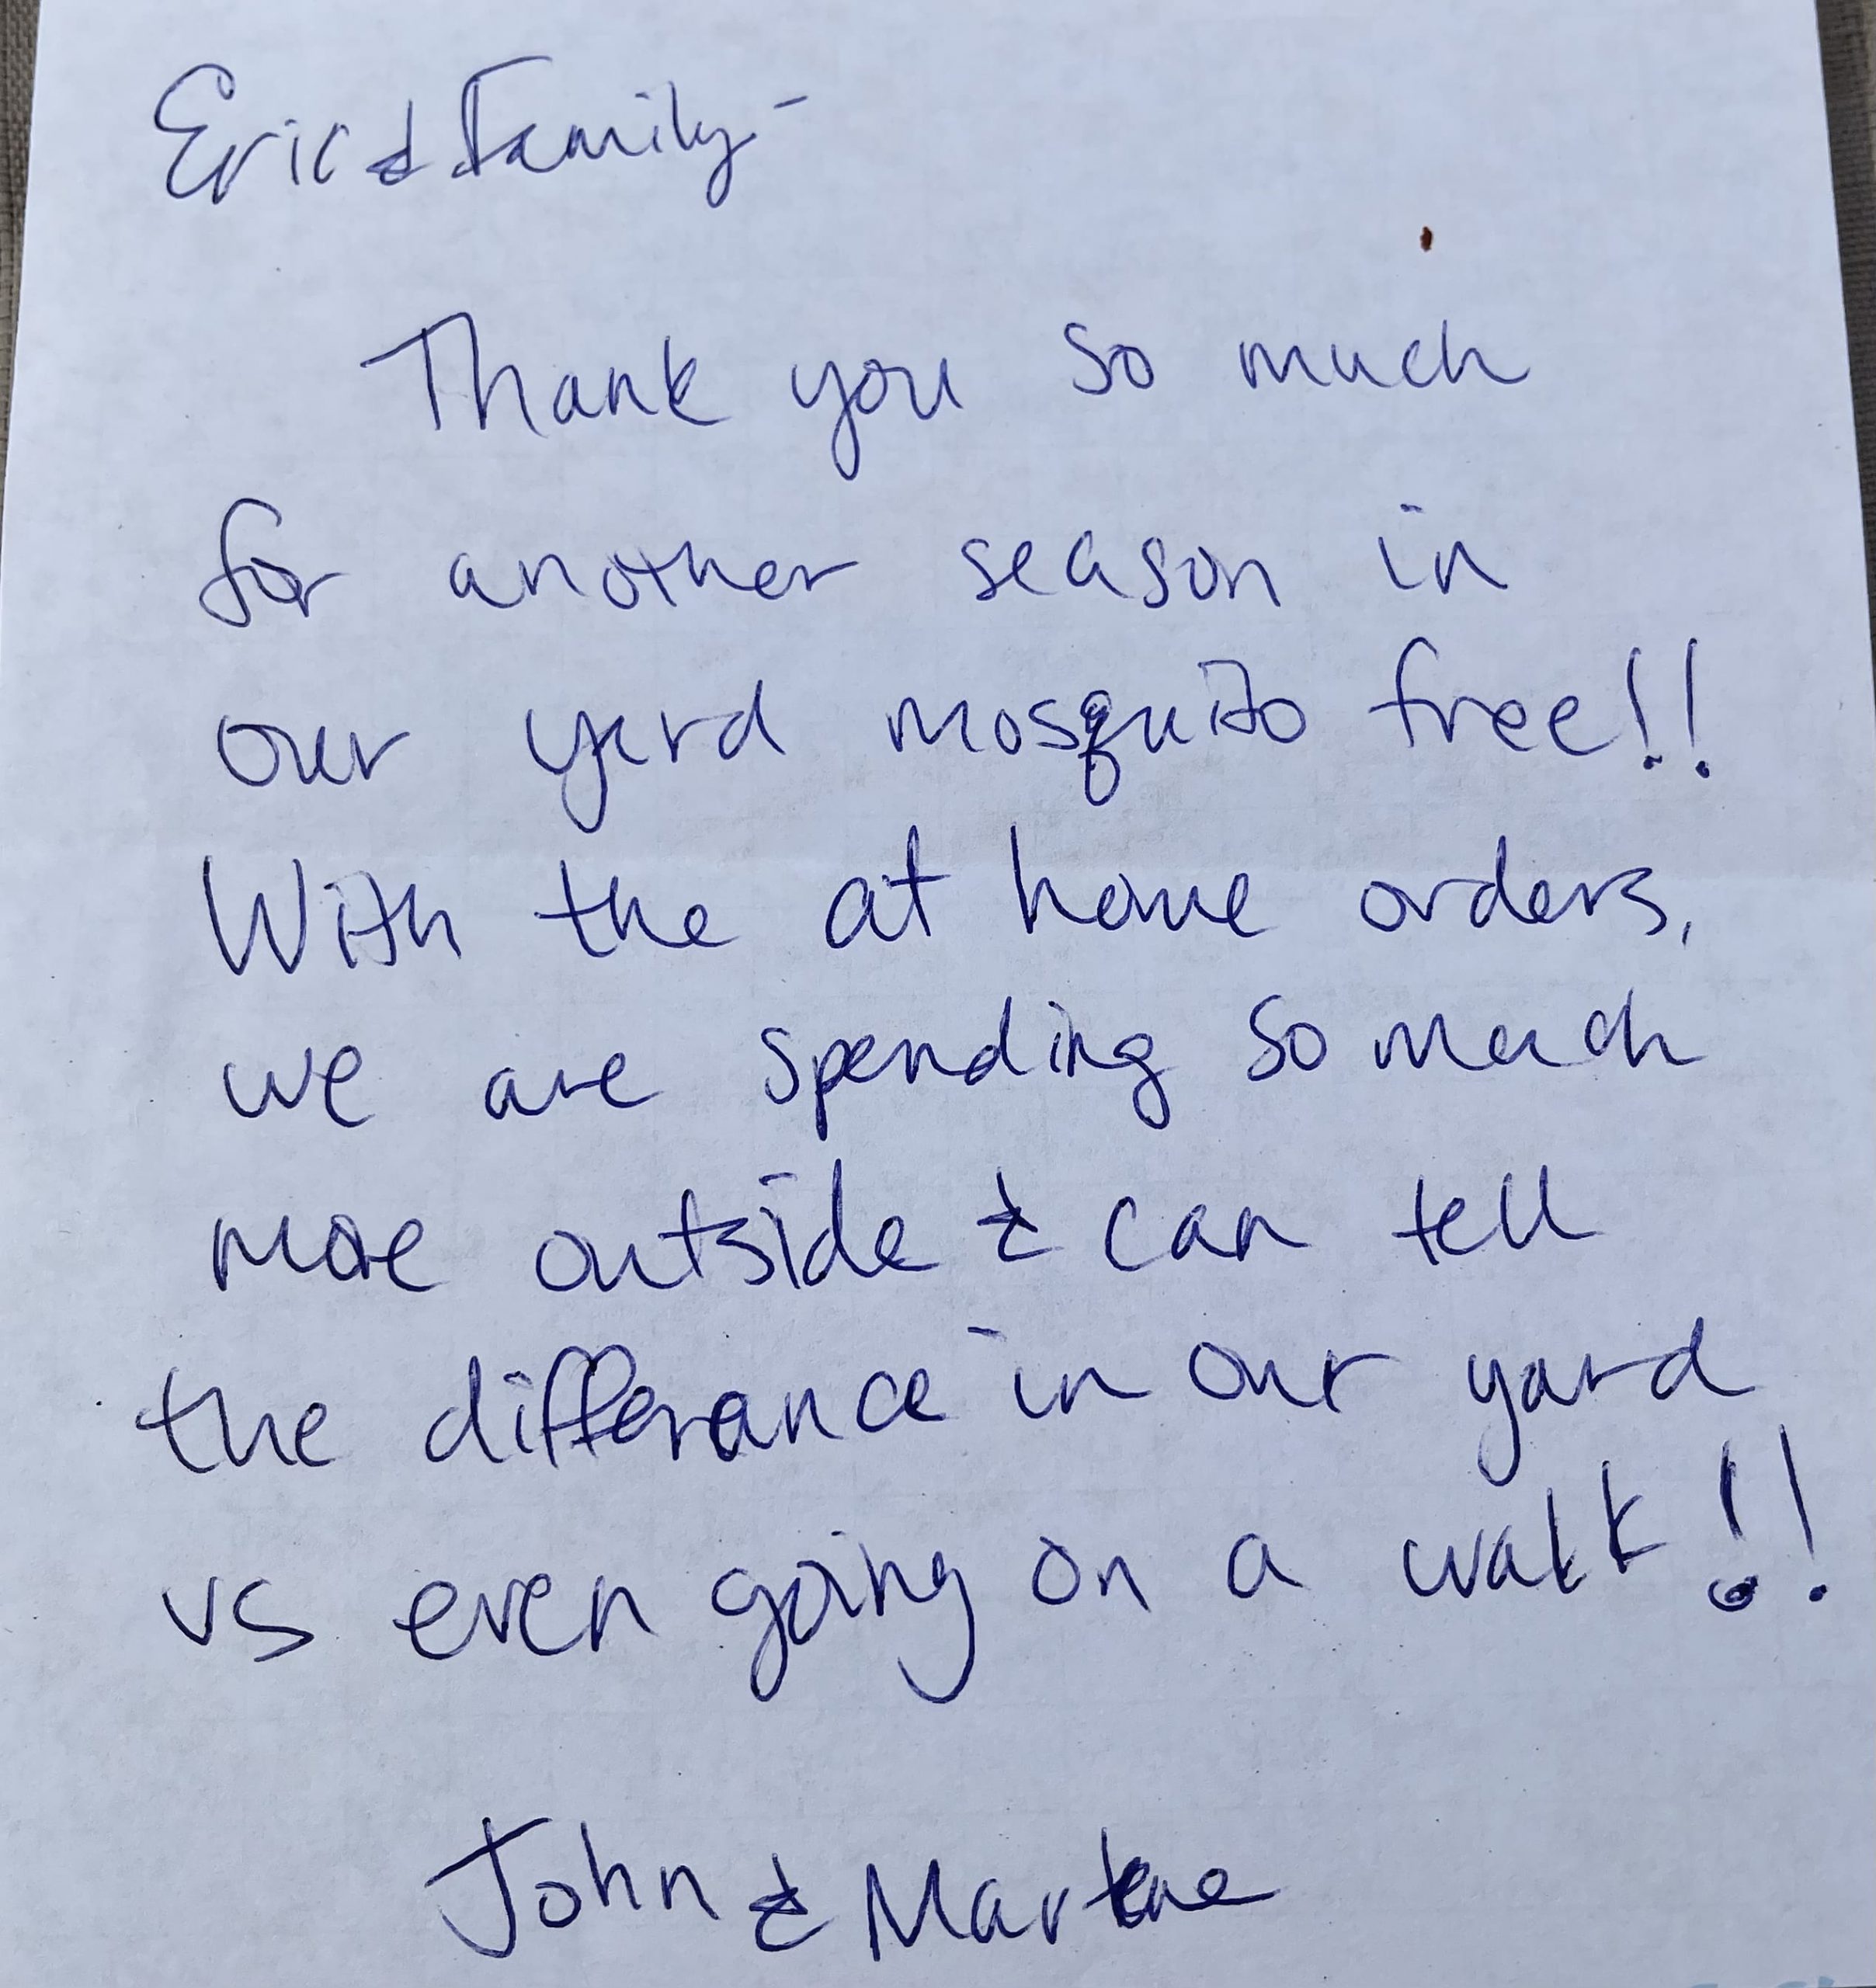 Eric & Family -
Thank you so much
for another season in
our yard mosquito free!!
With the at home orders,
we are spending so much
more outside & can tell
the difference in our yard
vs even going on a walk!!
John &